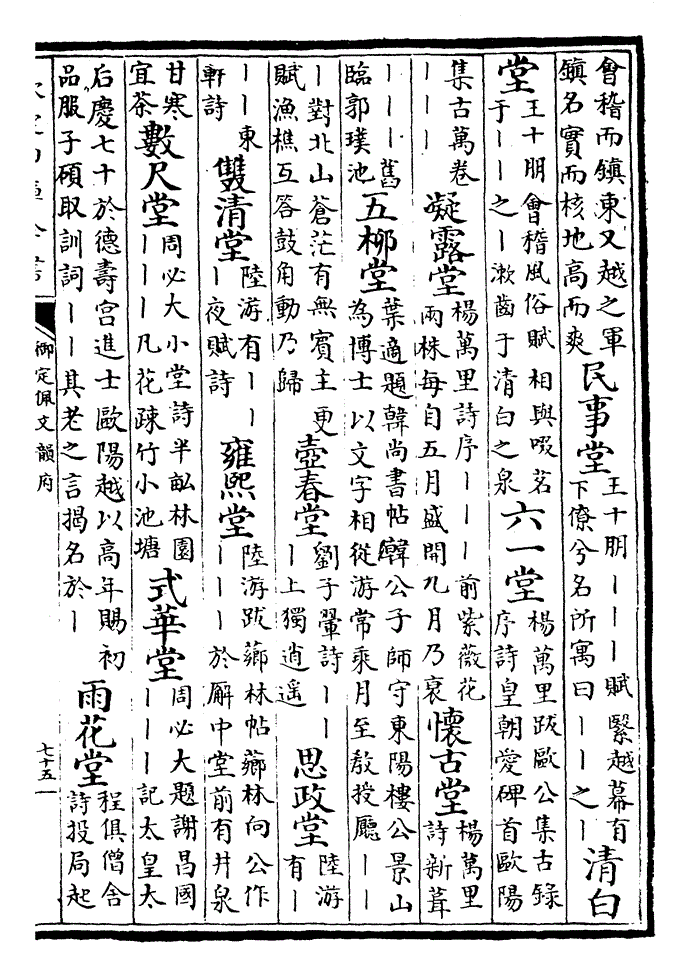 會稽而鎮東又越之軍
鎮名實而核地高而爽
民事堂
王十朋｜｜｜賦繄越幕有
下僚兮名所寓曰｜｜之｜
清白
堂
王十朋會稽風俗賦相與啜茗
于｜｜之｜漱齒于清白之泉
六一堂
楊萬里跋歐公集古錄
序詩皇朝愛碑首歐陽
集古萬卷
｜｜｜
凝露堂
楊萬里詩序｜｜｜前紫薇花
兩株每自五月盛開九月乃衰
懷古堂
楊萬里
詩新葺
｜｜｜舊
臨郭璞池
五柳堂
葉適題韓尚書帖韓公子師守東陽樓公景山
為博士以文字相從游常乘月至教授廳｜｜
｜對北山蒼茫有無賓主更
賦漁樵互答鼓角動乃歸
壺春堂
劉子翬詩｜｜
｜上獨逍遙
思政堂
陸游
有｜
｜｜東
軒詩
雙清堂
陸游有｜｜
｜夜賦詩
雍熙堂
陸游跋薌林帖薌林向公作
｜｜｜於廨中堂前有井泉
甘寒
宜茶
數尺堂
周必大小堂詩半畝林園
｜｜｜凡花疎竹小池塘
式華堂
周必大題謝昌國
｜｜｜記太皇太
后慶七十於德壽宫進士歐陽越以高年賜初
品服子碩取訓詞｜｜其老之言揭名於｜
雨花堂
程俱僧舍
詩投局起
御定佩文韻府
七十五